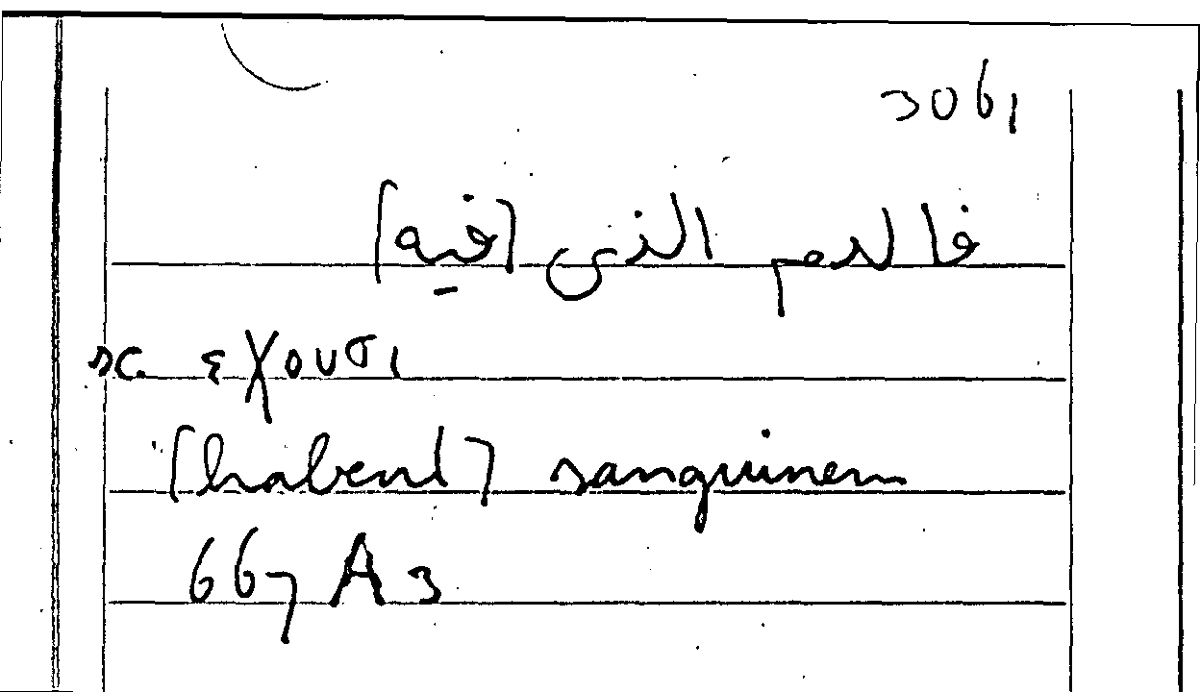 3061
فالدم الذى [فيه]
sc. εχουσι
[habent] sanguinem
667 A3